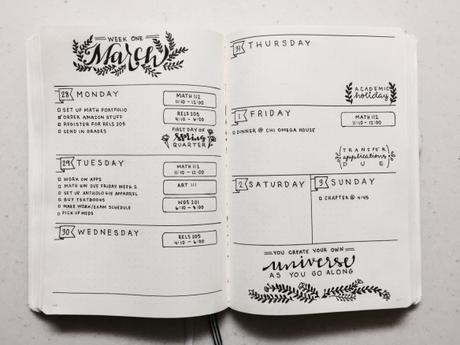 WEEK ONE
March
28 MONDAY
SET UP MATH PORTFOLIO
ORDER AMAZON STUFF
REGISTER FOR RELS 205
SEND IN GRADES
MATH 112
11:10 - 12:00
RELS 205
4:10 - 6:00
FIRST DAY OF
Spring
QUARTER
29 TUESDAY
WORK ON APPS
MATH HW DUE FRIDAY WEEK 2
SET UP ANTHOLOGIE APPAREL
BUY TEXTBOONS
MAKE WORK/EXAM SCHEDULE
PICK UP MEDS
MATH 112
11:10 - 12:00
ART 111
WGS 201
6:10 - 8:00
30 WEDNESDAY
RELS 205
4:10 - 6:00
31 THURSDAY
ACADEMIC
holiday
1 FRIDAY
DINNER @ CHI OMEGA HOUSE
MATH 112
11:10 - 12:00
TRANSFER
applications
DUE
2 SATURDAY
3 SUNDAY
CHAPTER @ 4:45
YOU CREATE YOUR OWN
universe
AS YOU GO ALONG